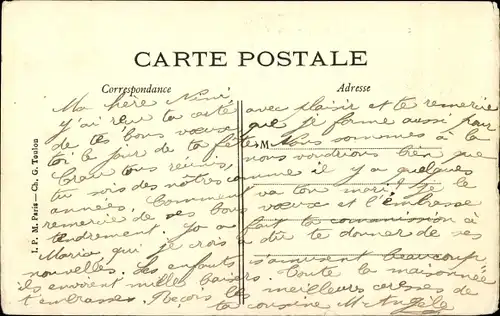 CARTE POSTALE
Correspondance
Adresse
M
I. P. M. Paris — Ch. G. Toulon
Ma chère Nini
J'ai reçu ta carte avec plaisir et te remercie
de tes bons vœux que je forme aussi pour
toi le jour de ta fête. Nous sommes à la
Crau tous réunis, nous voudrions bien que
tu sois des nôtres comme il y a quelques
années. Comment va ton mari? Je le
remercie de ses bons vœux et l'embrasse
tendrement. a fait ta commission à
Maria qui je crois a dû te donner de ses
nouvelles. Les enfants s'amusent beaucoup
ils envoient mille baisers. Toute la maisonnée
t'embrasse. Reçois les meilleures caresses de
ta cousine M. Angèle